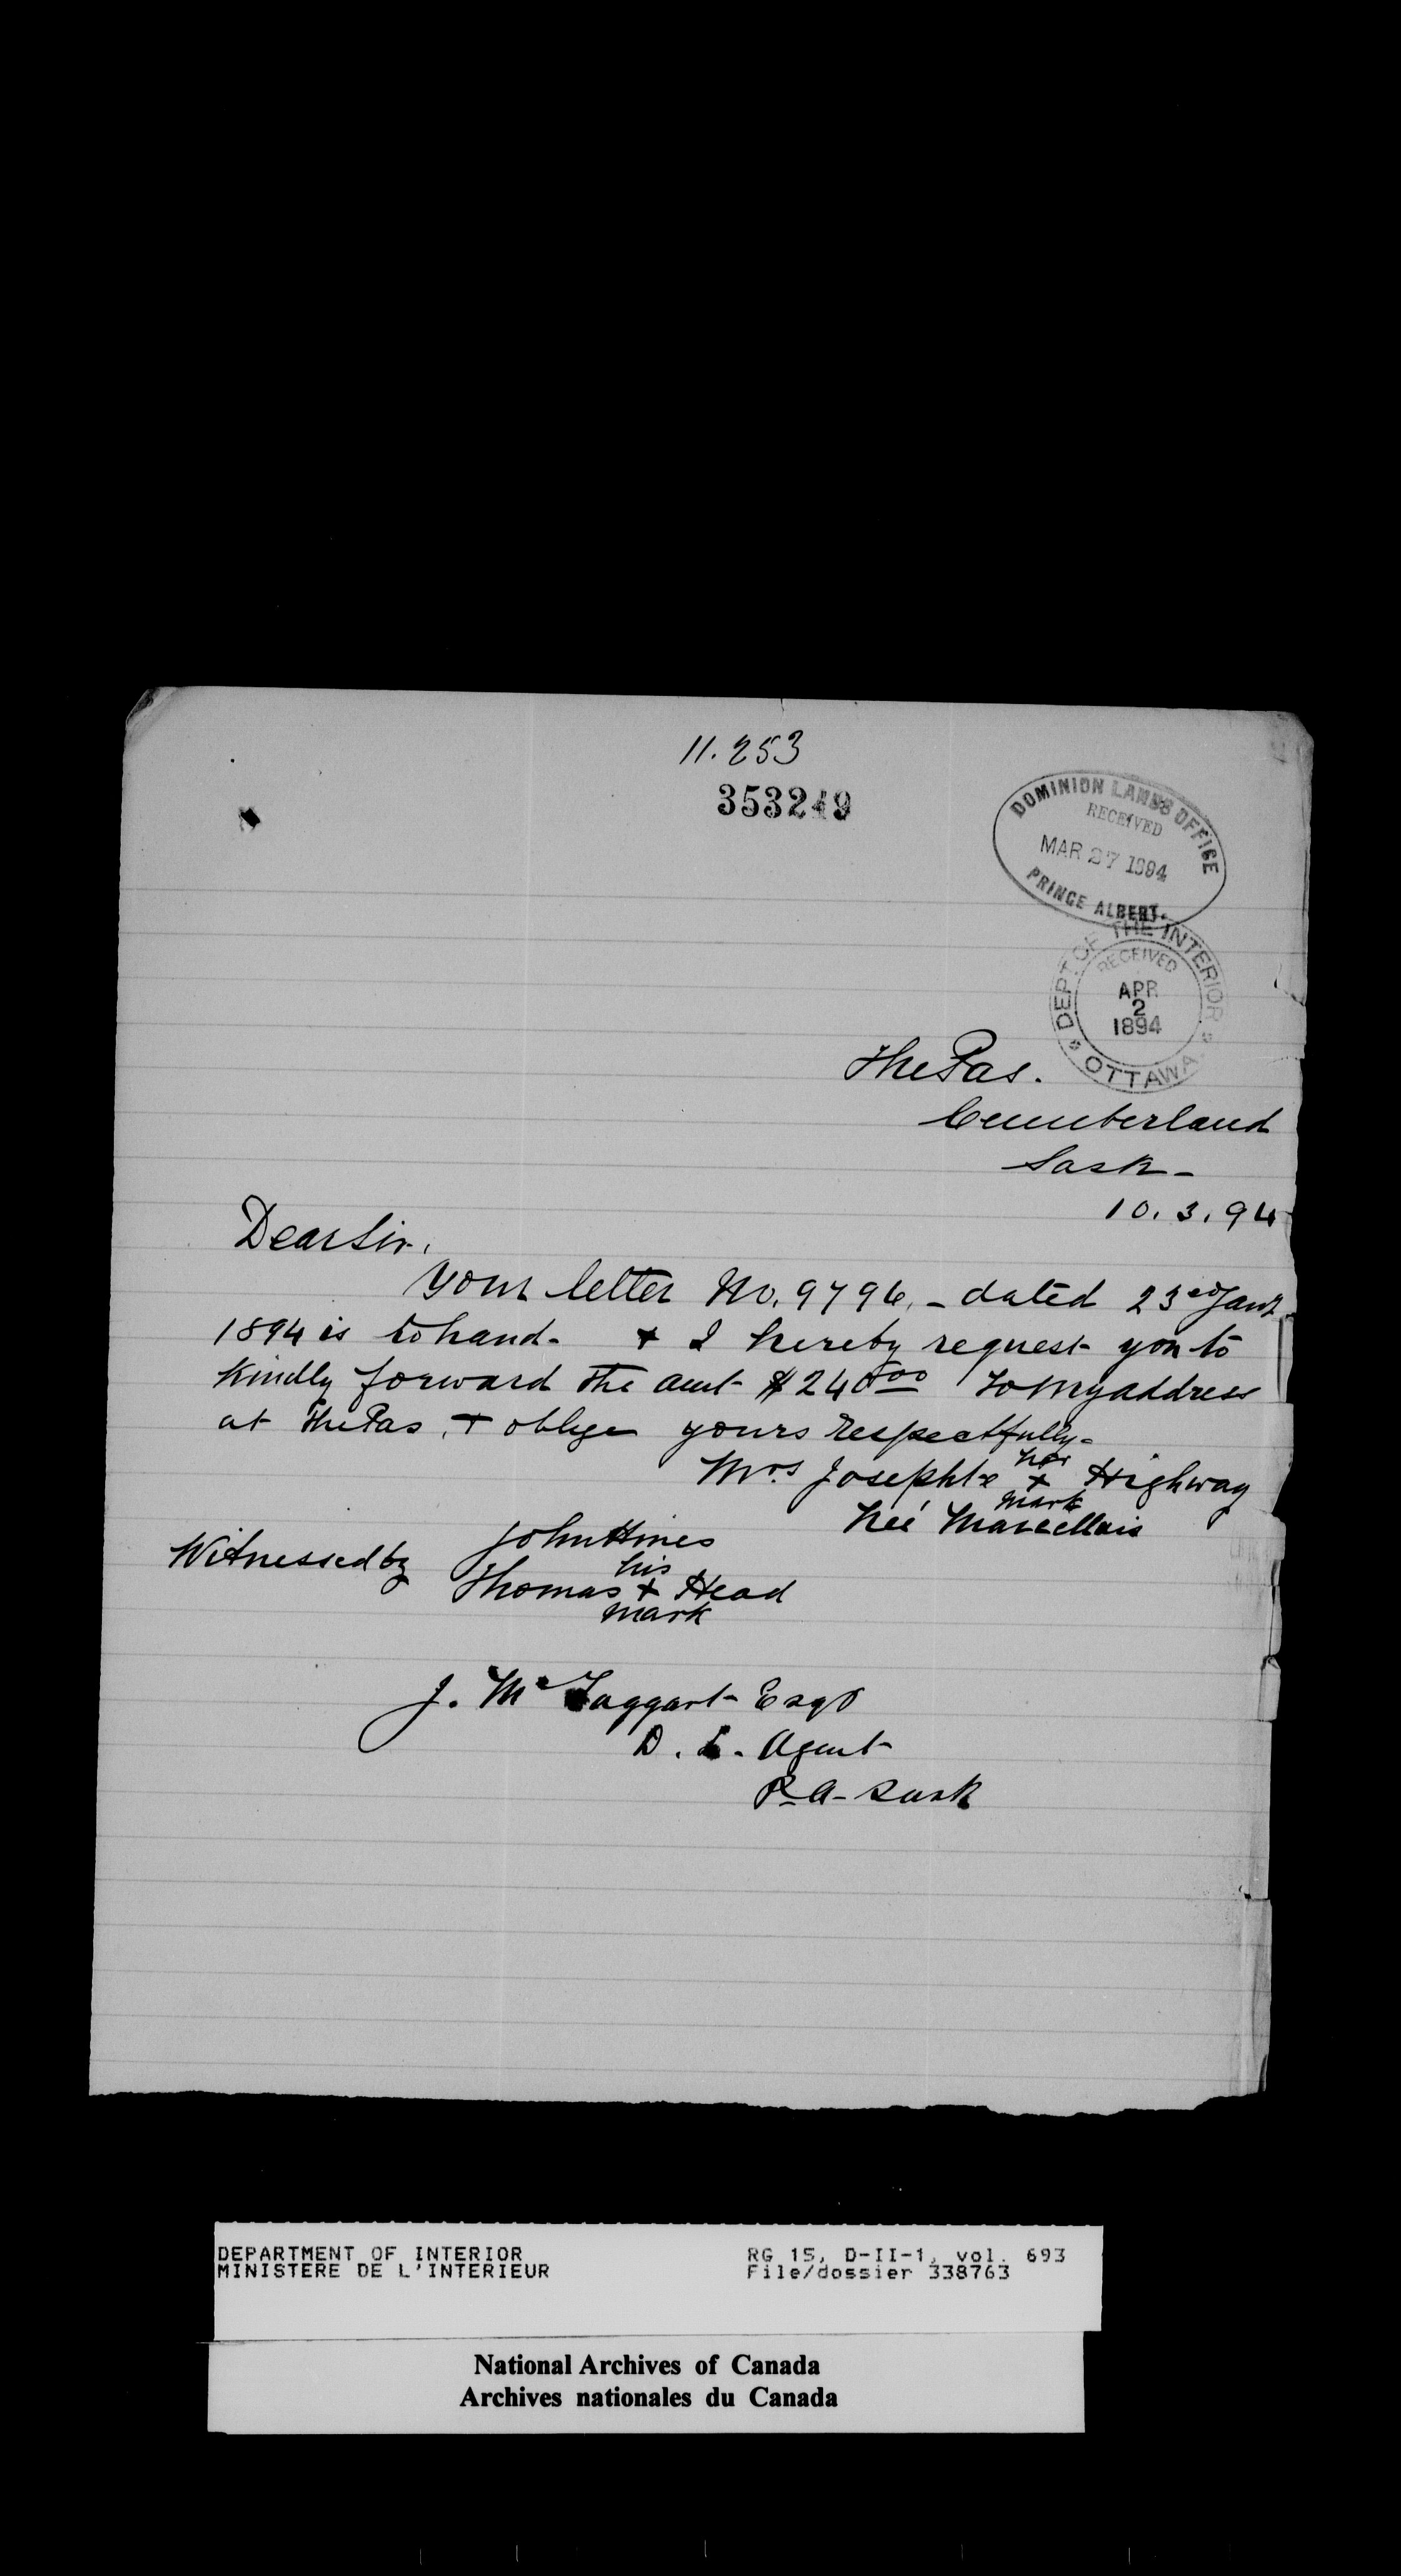 11.253
353249
DOMINION LANDS OFFICE
RECEIVED
MAR 27 1894
PRINCE ALBERT.
DEPT. OF THE INTERIOR
RECEIVED
APR
2
1894
OTTAWA
The Pas.
Cumberland
Sask-
10.3.94
Dear Sir,
Your letter No. 9796, - dated 23rd Jany
1894 is to hand - + I hereby request you to
kindly forward the amt $240 00 to my address
at The Pas, + oblige yours respectfully-
her
Mrs Josephte + Highway
mark
Neé Marcellais
Witnessed by John Hines
his
Thomas + Head
mark
J. Mc Taggart Esqr
D. L. Agent
P.A- Sask
DEPARTMENT OF INTERIOR RG 15, D-II-1, vol. 693
MINISTERE DE L'INTERIEUR File/dossier 338763
National Archives of Canada
Archives nationales du Canada